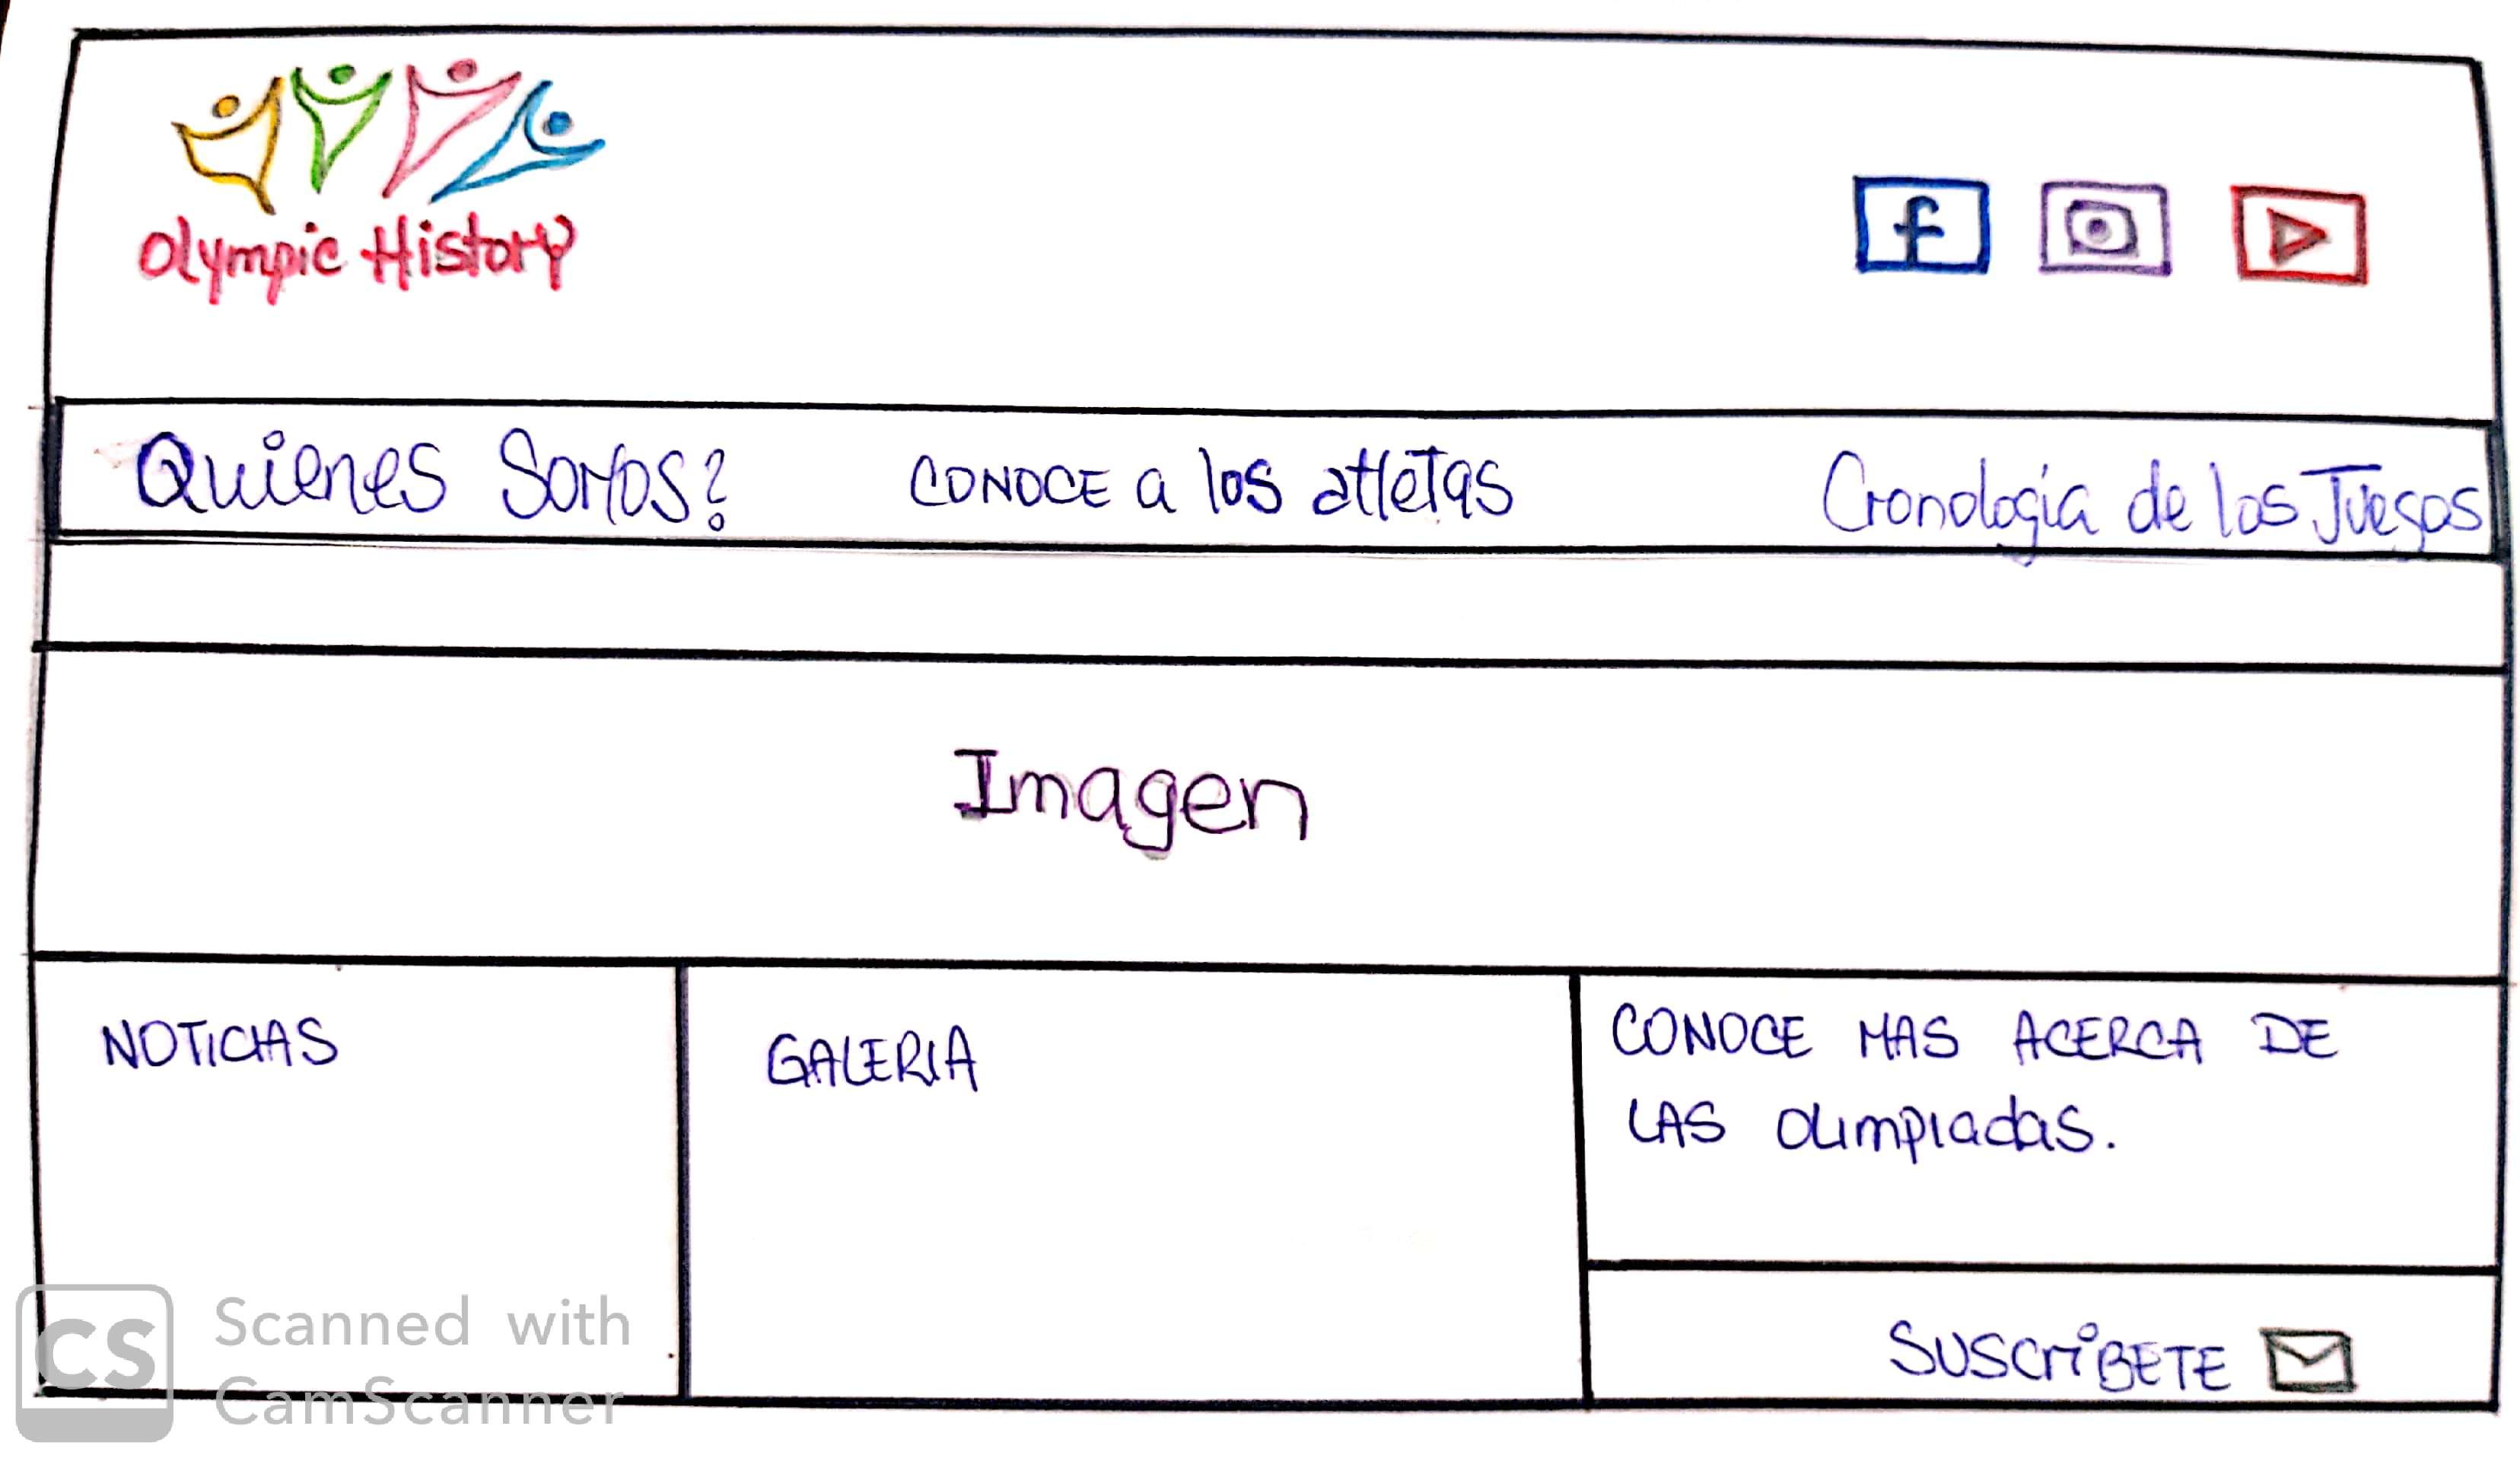 Olympic History
f
Quienes Somos?
CONOCE a los atletas
Cronologia de los Juegos
Imagen
NOTICIAS
GALERIA
CONOCE MAS ACERCA DE
LAS OLIMPIADAS.
SUSCRIBETE
CS
Scanned with
CamScanner